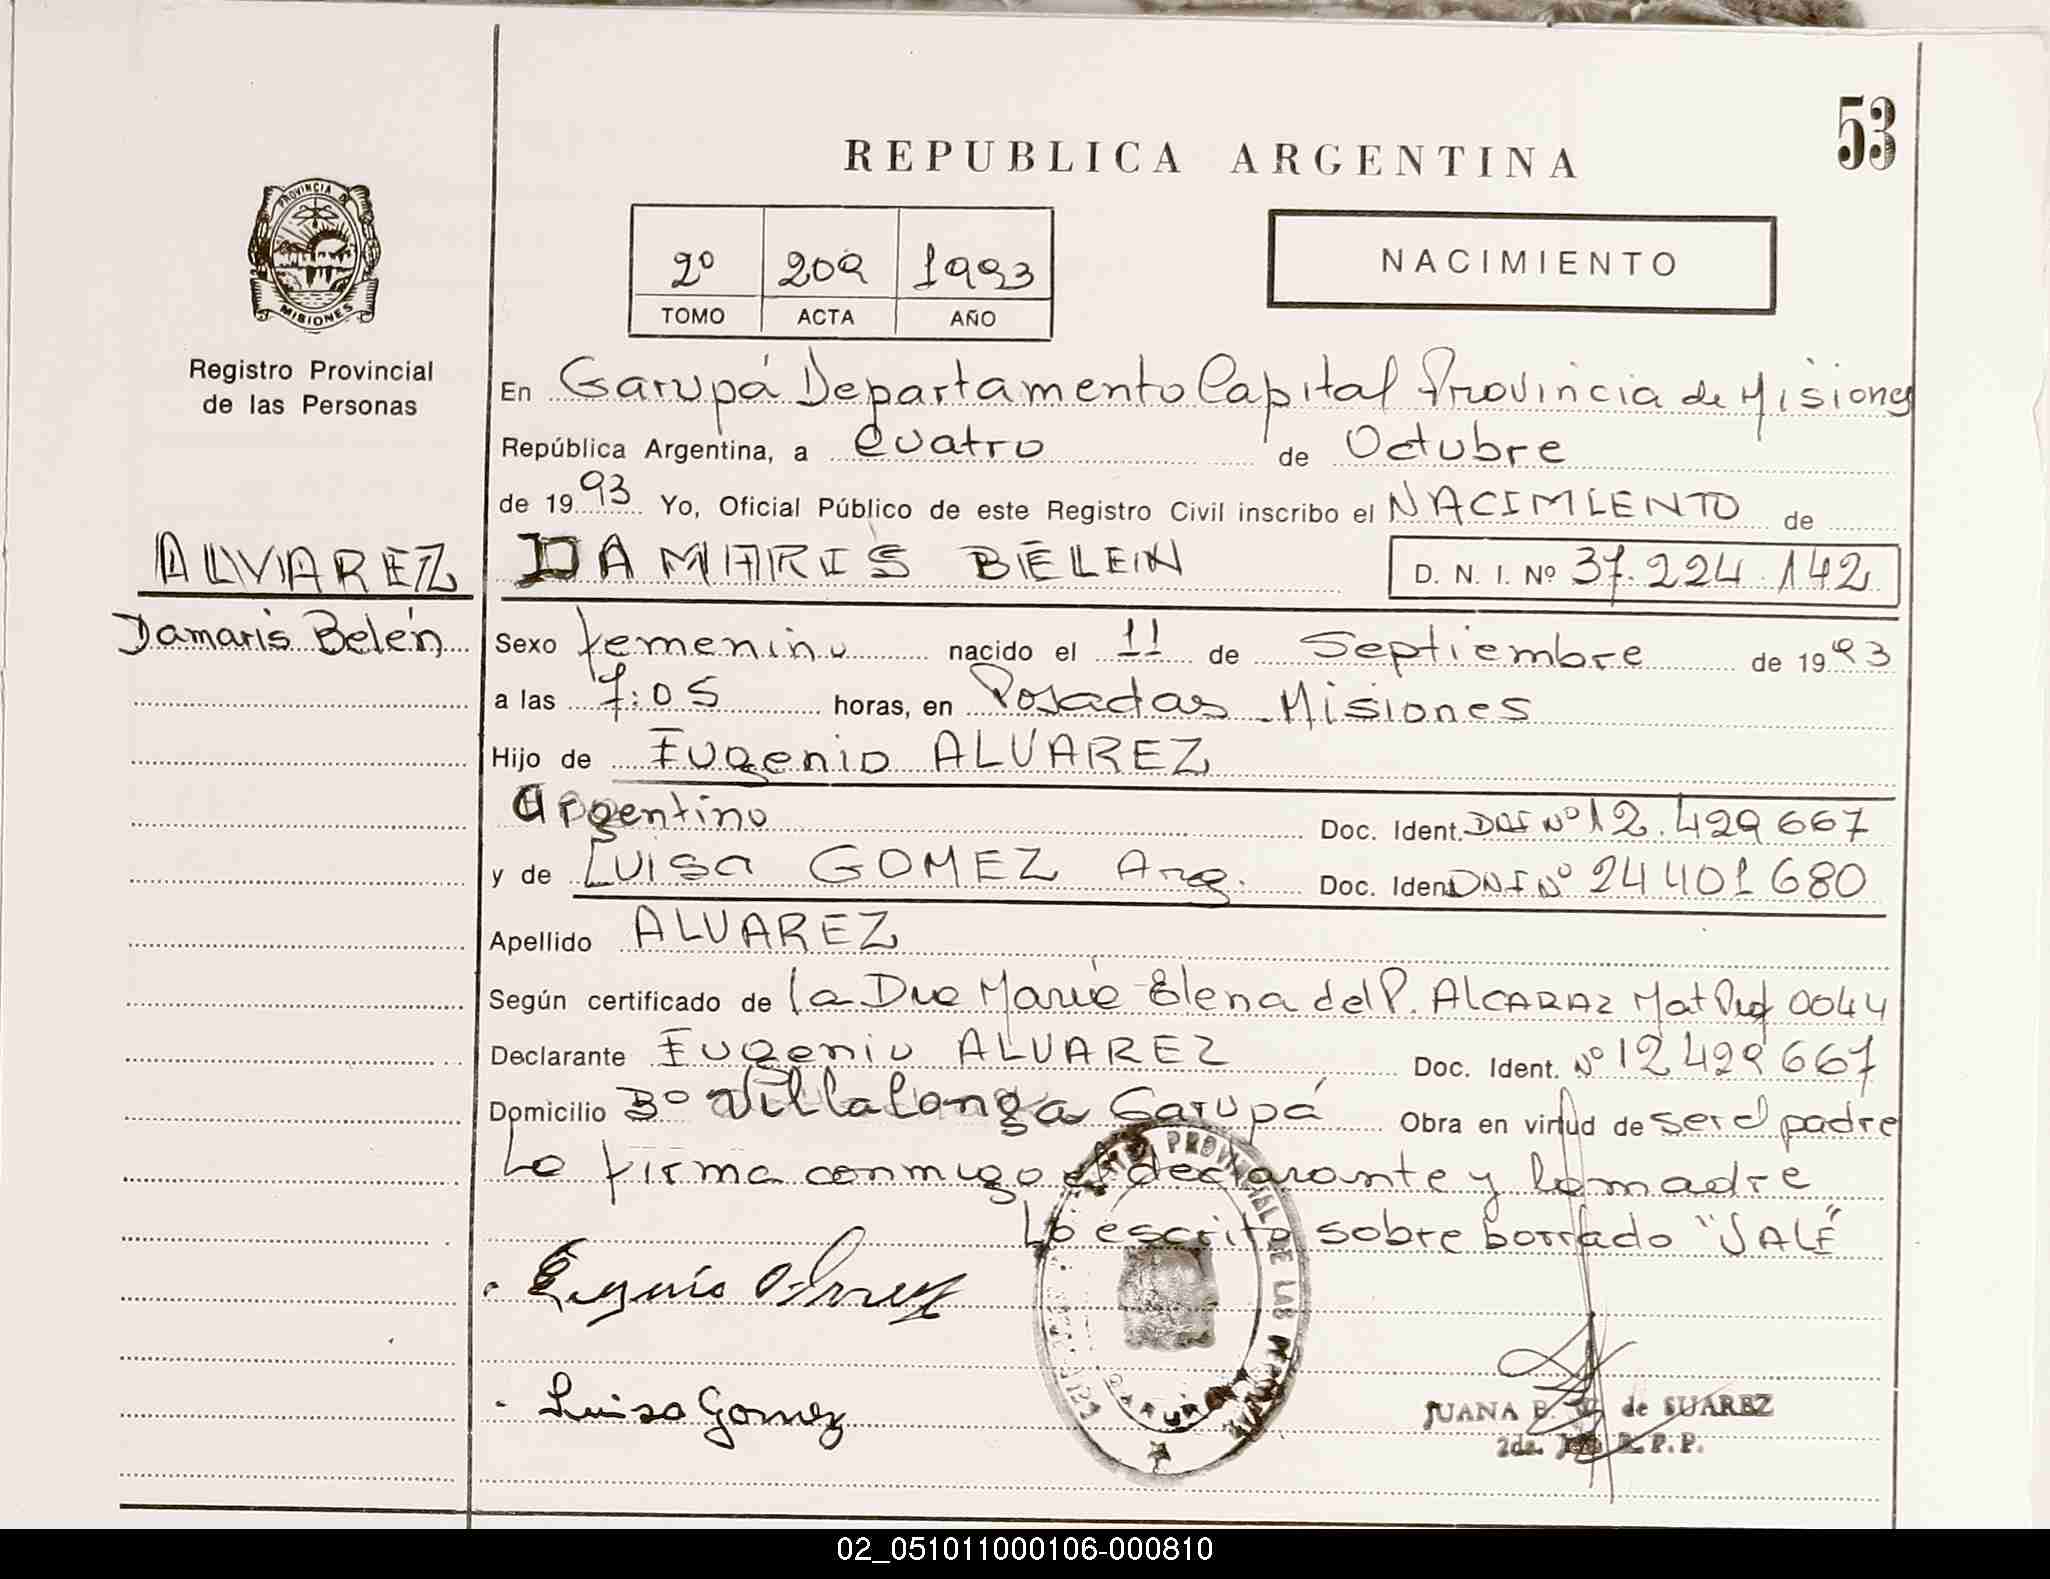 53
REPUBLICA ARGENTINA
PROVINCIA DE
MISIONES
Registro Provincial
de las Personas
2º 209 1993
TOMO ACTA AÑO
NACIMIENTO
En Garupá Departamento Capital Provincia de Misiones
República Argentina, a Cuatro de Octubre
de 1993 Yo, Oficial Público de este Registro Civil inscribo el NACIMIENTO de
ALVAREZ
Damaris Belén
DAMARIS BELEN
D. N. I. Nº 37.224.142
Sexo femenino nacido el 11 de Septiembre de 1993
a las 7:05 horas, en Posadas - Misiones
Hijo de Eugenio ALVAREZ
Argentino Doc. Ident. DNI Nº 12.429667
y de Luisa GOMEZ Arg. Doc. Iden DNI Nº 24401680
Apellido ALVAREZ
Según certificado de la Dra María Elena del P. ALCARAZ Mat 0044
Declarante Eugenio ALVAREZ Doc. Ident. Nº 12429667
Domicilio Bº Villalonga Garupá Obra en virtud de ser el padre
Lo firma conmigo el declarante y la madre
Lo escrito sobre borrado "VALE"
Eugenio Alvarez
Luisa Gomez
PROVINCIAL DE LAS
GARUPA
JUANA B. de SUAREZ
2da. R.P.P.
02_051011000106-000810